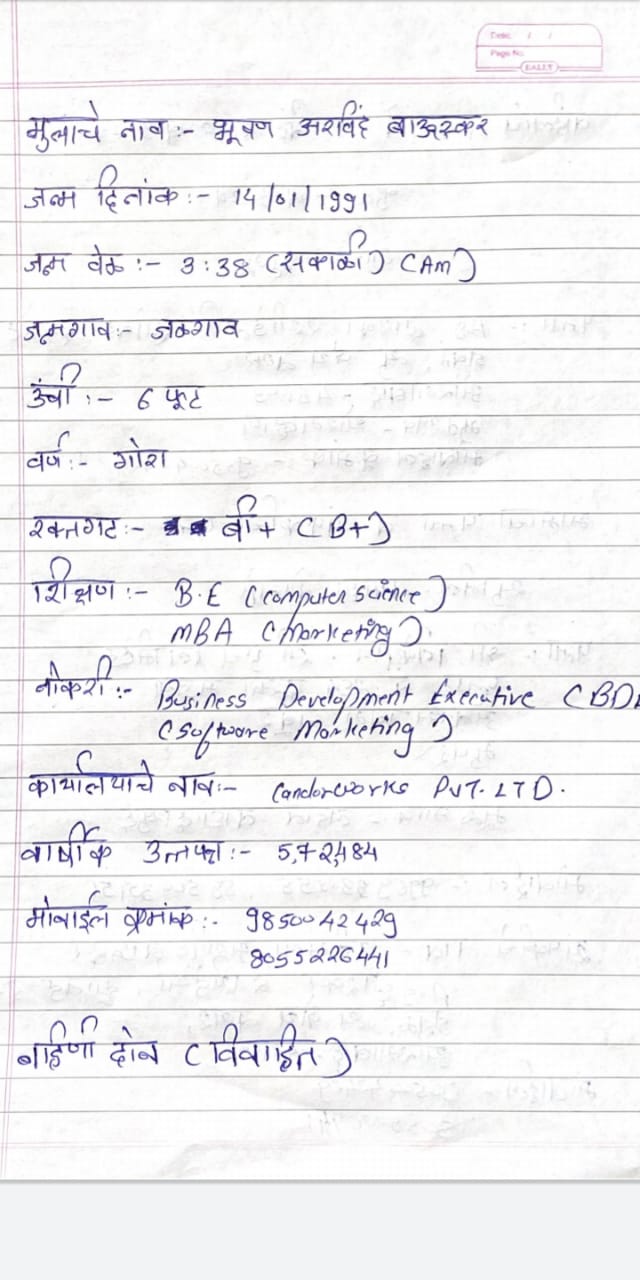 Date: / /
Page No.
EALLY
मुलाचे नाव :- भूषण अरविंद बाऊस्कर
जन्म दिनांक :- 14/01/1991
जन्म वेळ :- 3:38 (सकाळी) (AM)
जन्मगाव :- जळगाव
उंची :- 6 फूट
वर्ण :- गोरा
रक्तगट :- बी+ (B+)
शिक्षण :- B.E (Computer Science)
MBA (Marketing)
नोकरी :- Business Development Executive (BDE
(Software Marketing)
कार्यालयाचे नाव :- Candorworks PVT. LTD.
वार्षीक उत्पन्न :- 5,72,484
मोबाईल क्रमांक :- 9850042429
8055226441
बहिणी दोन (विवाहित)